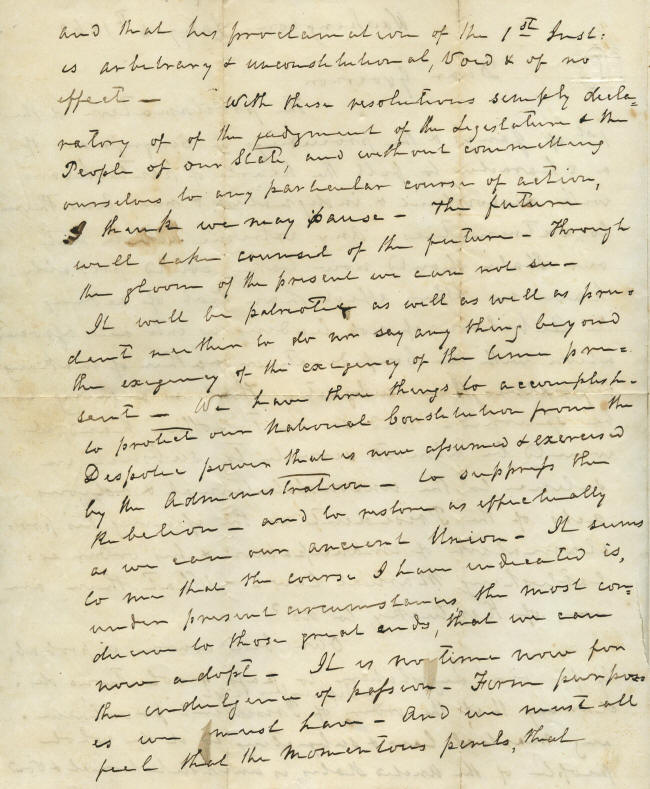 and that his proclamation of the 1st Inst:
is arbitrary & unconstitutional, Void & of no
effect — With these resolutions simply decla=
ratory of of the judgment of the Legislature & the
People of our State, and without committing
ourselves to any particular course of action,
I think we may pause — The future
will take counsel of the future — Through
the gloom of the present we can not see —
It will be patriotic as well as well as pru=
dent neither to do nor say any thing beyond
the exigency of the exigency of the time pre=
sent — We have three things to accomplish —
to protect our National Constitution from the
Despotic power that is now assumed & exercised
by the Administration — to suppress the
Rebelion — and to restore as effectually
as we can our ancient Union — It seems
to me that the course I have indicated is,
under present circumstances, the most con=
ducive to those great ends, that we can
now adopt — It is no time now for
the indulgence of passion — Firm purpos
es we must have — And we must all
feel that the momentous perils, that